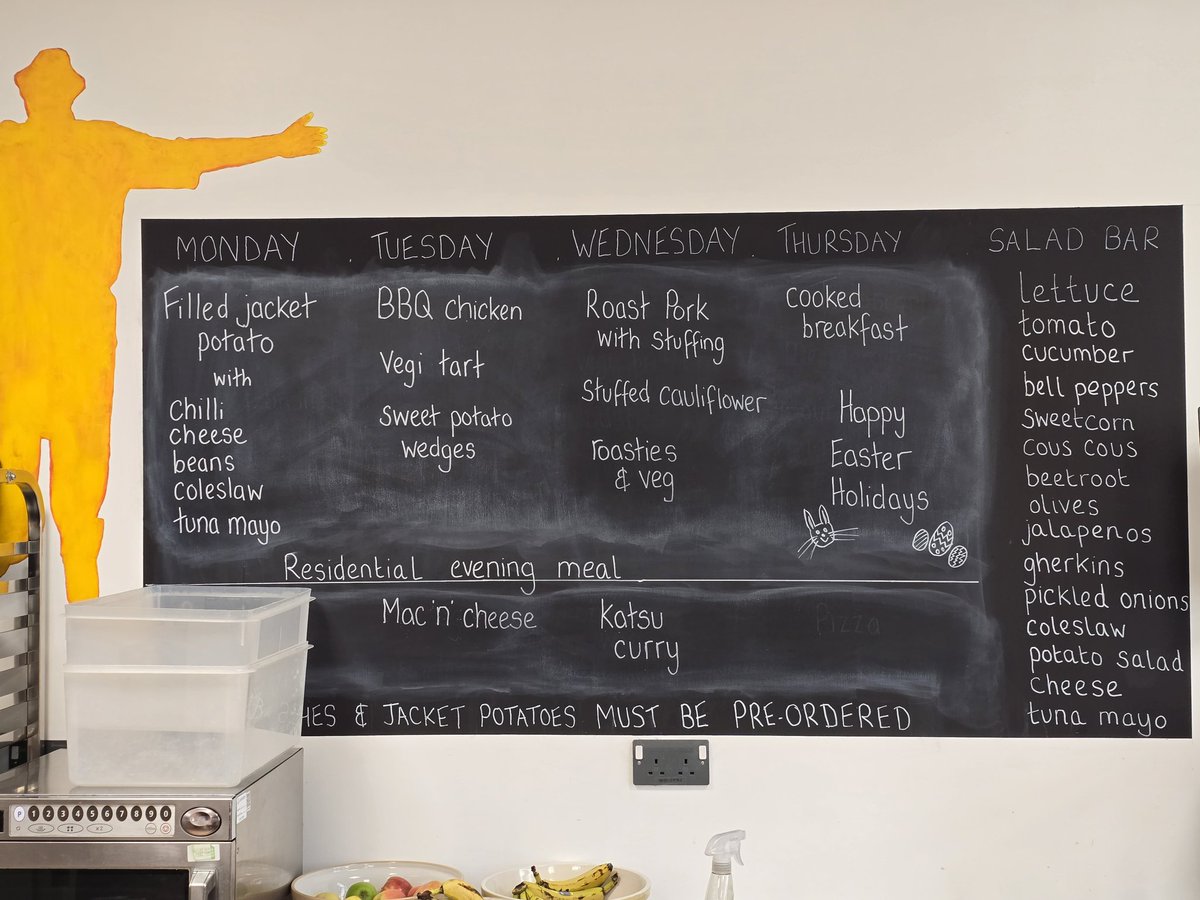 MONDAY
Filled jacket
potato
with
Chilli
cheese
beans
coleslaw
tuna mayo
TUESDAY
BBQ chicken
Vegi tart
sweet potato
wedges
WEDNESDAY
Roast Pork
with stuffing
Stuffed cauliflower
roasties
& veg
THURSDAY
cooked
breakfast
Happy
Easter
Holidays
Residential evening meal
Mac 'n' cheese
Katsu
curry
Pizza
& JACKET POTATOES MUST BE PRE-ORDERED
SALAD BAR
lettuce
tomato
cucumber
bell peppers
sweetcorn
cous cous
beetroot
olives
jalapenos
gherkins
pickled onions
coleslaw
potato salad
cheese
tuna mayo
P 1 2 3 4 5 6 7 8 9 0
X2